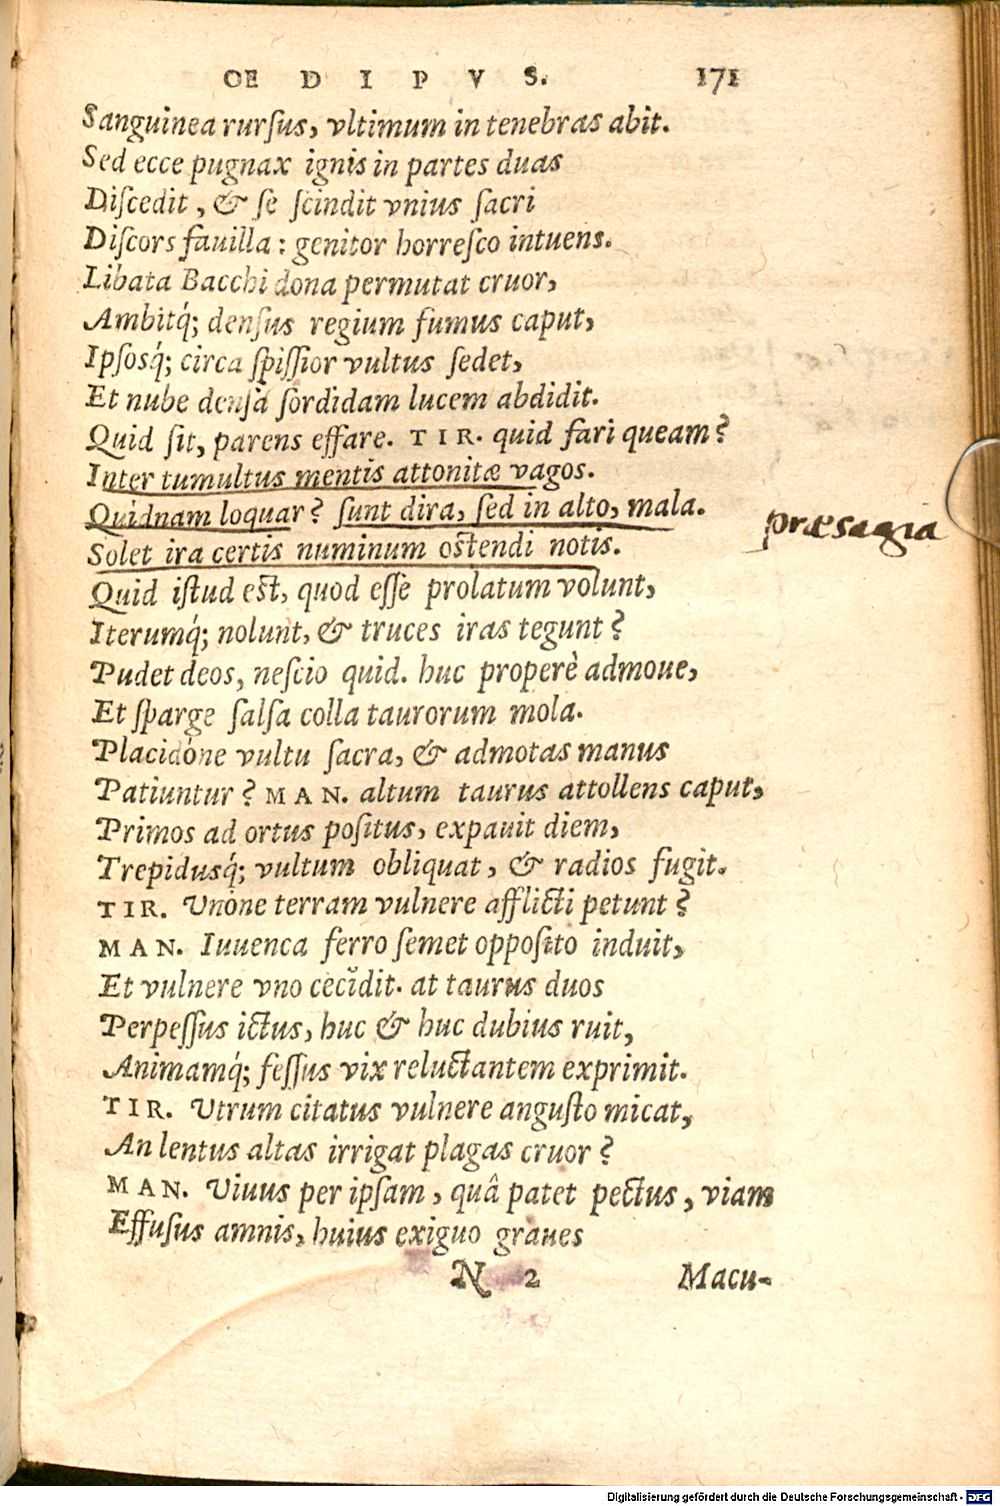 OE D I P V S. 171
Sanguinea rurſus, vltimum in tenebras abit.
Sed ecce pugnax ignis in partes duas
Diſcedit, & ſe ſcindit vnius ſacri
Diſcors fauilla: genitor horreſco intuens.
Libata Bacchi dona permutat cruor,
Ambitq́; denſus regium fumus caput,
Ipſosq́; circa ſpiſſior vultus ſedet,
Et nube denſa ſordidam lucem abdidit.
Quid ſit, parens effare. TIR. quid fari queam?
Inter tumultus mentis attonitæ vagos.
Quidnam loquar? ſunt dira, ſed in alto, mala.
præsagia
Solet ira certis numinum oſtendi notis.
Quid iſtud eſt, quod eſſe prolatum volunt,
Iterumq́; nolunt, & truces iras tegunt?
Pudet deos, neſcio quid. huc properè admoue,
Et ſparge ſalſa colla taurorum mola.
Placidóne vultu ſacra, & admotas manus
Patiuntur? MAN. altum taurus attollens caput,
Primos ad ortus poſitus, expauit diem,
Trepidusq́; vultum obliquat, & radios fugit.
TIR. Vnóne terram vulnere afflicti petunt?
MAN. Iuuenca ferro ſemet oppoſito induit,
Et vulnere vno cecĭdit. at taurus duos
Perpeſſus ictus, huc & huc dubius ruit,
Animamq́; feſſus vix reluctantem exprimit.
TIR. Vtrum citatus vulnere anguſto micat,
An lentus altas irrigat plagas cruor?
MAN. Viuus per ipſam, quâ patet pectus, viam
Effuſus amnis, huius exiguo graues
N 2 Macu-
Digitalisierung gefördert durch die Deutsche Forschungsgemeinschaft - DFG